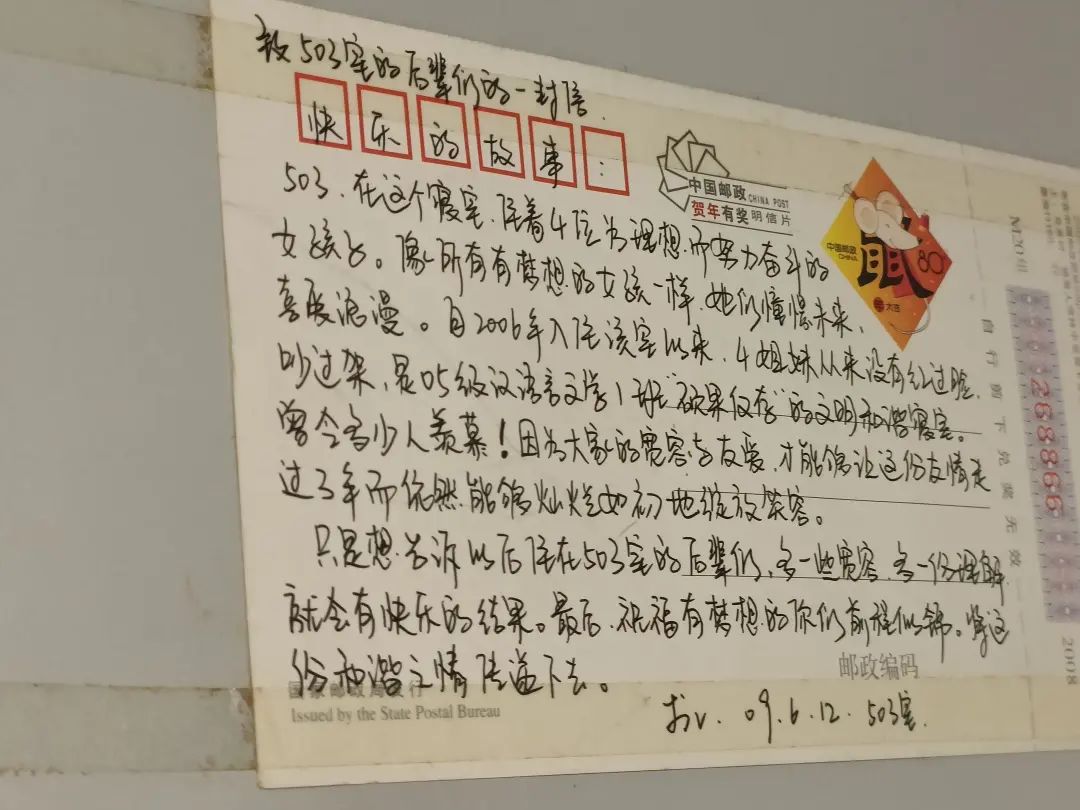 致503室的后辈们的一封信
快乐的故事：
中国邮政 CHINA POST
贺年有奖明信片
中国邮政
CHINA
鼠 80
503，在这个寝室，住着4位为理想而努力奋斗的
女孩子。像所有有梦想的女孩一样，她们憧憬未来，
喜爱浪漫。自2006年入住该室以来，4姐妹从来没有红过脸，
吵过架，是05级汉语言文学1班“硕果仅存”的文明和谐寝室。
曾令多少人羡慕！因为大家的宽容与友爱，才能够让这份友情走
过3年而依然能够灿烂如初地绽放笑容。
只是想告诉以后住在503室的后辈们，多一些宽容，多一份理解，
就会有快乐的结果。最后，祝福有梦想的你们前程似锦。将这
份和谐之情传递下去。
邮政编码
国家邮政局发行
Issued by the State Postal Bureau
09.6.12. 503室.
自行剪下兑奖无效
268866
2008